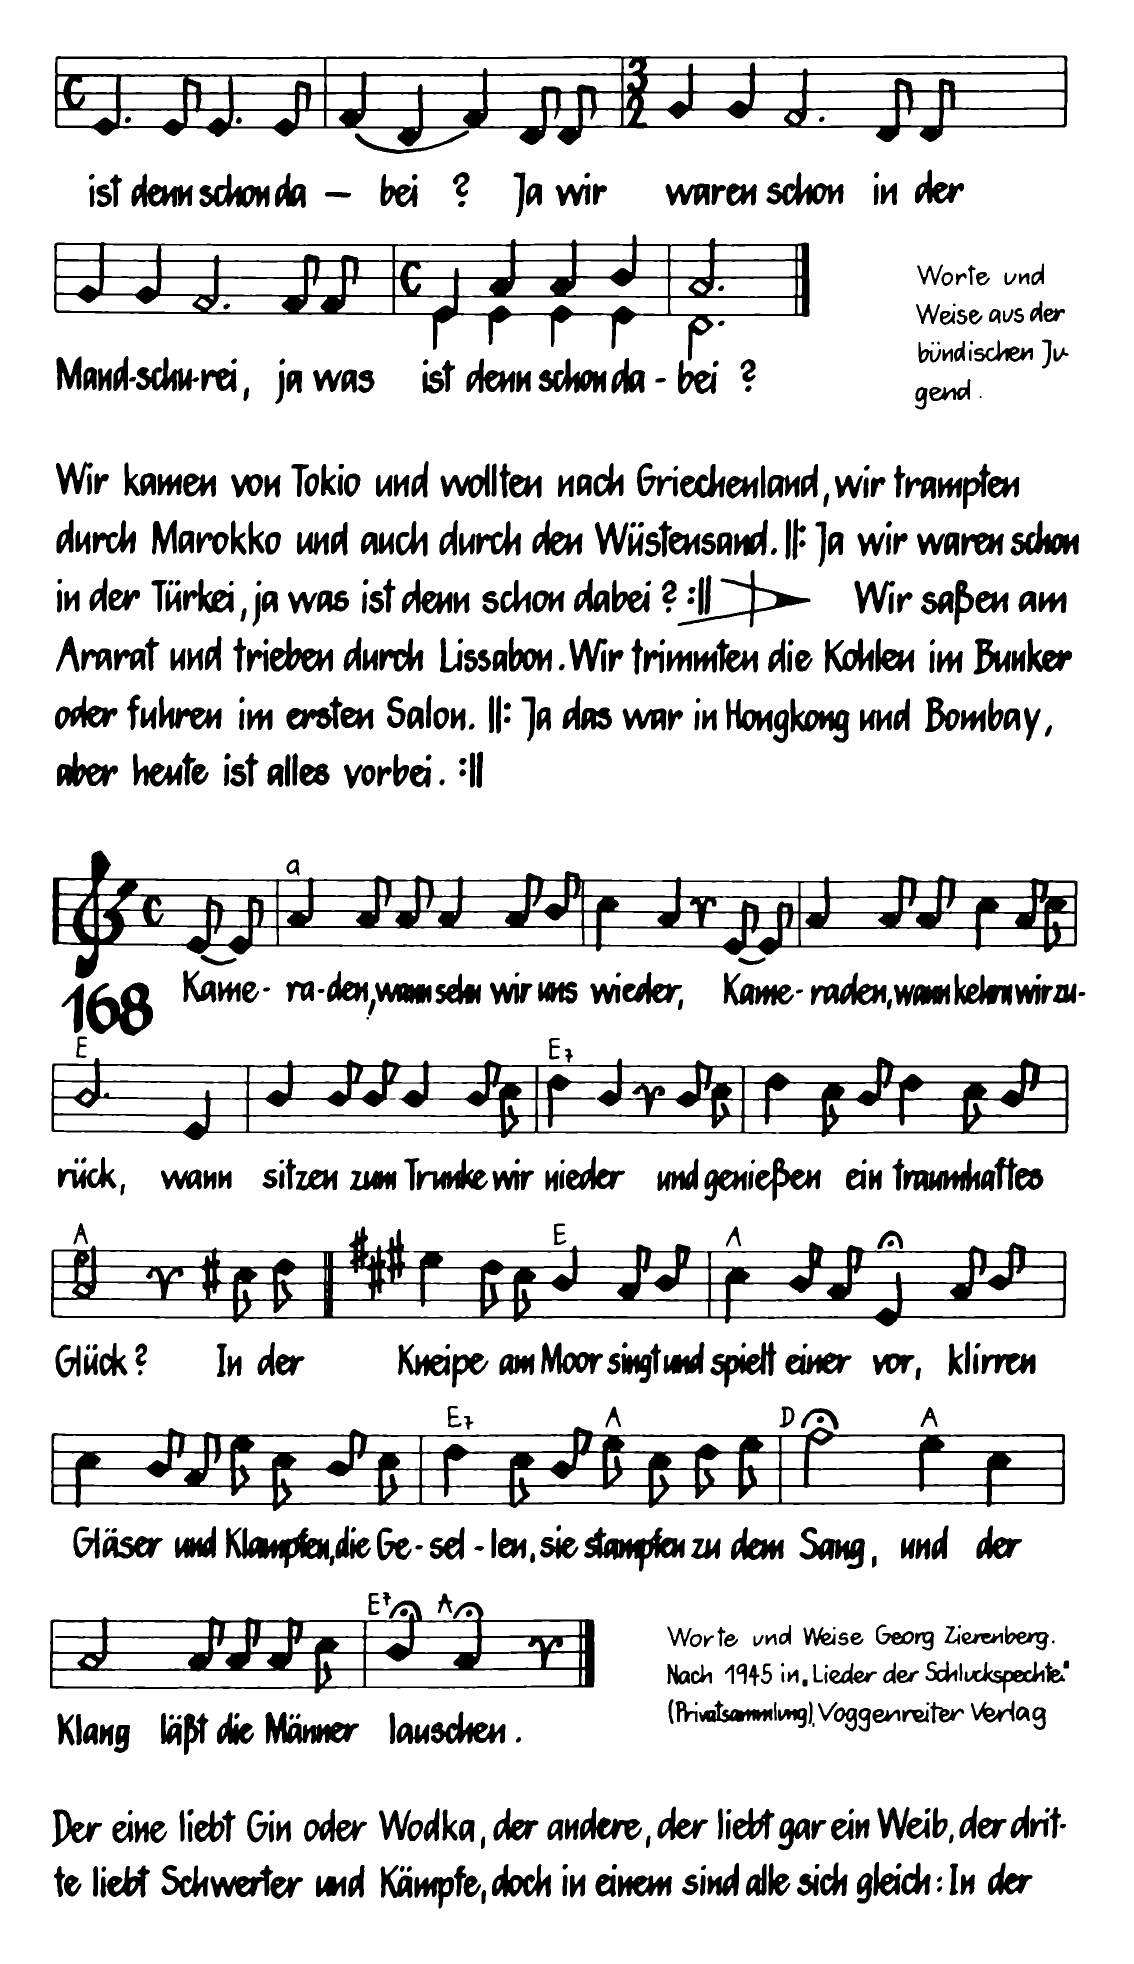 ist denn schon da — bei ? Ja wir waren schon in der
Mand-schu-rei, ja was ist denn schon da - bei ?
Worte und
Weise aus der
bündischen Ju-
gend.
Wir kamen von Tokio und wollten nach Griechenland, wir trampten
durch Marokko und auch durch den Wüstensand. ||: Ja wir waren schon
in der Türkei, ja was ist denn schon dabei ? :|| Wir saßen am
Ararat und trieben durch Lissabon. Wir trimmten die Kohlen im Bunker
oder fuhren im ersten Salon. ||: Ja das war in Hongkong und Bombay,
aber heute ist alles vorbei. :||
a
168 Kame- ra-den, wann sehn wir uns wieder, Kame- raden, wann kehrn wir zu-
E E7
rück, wann sitzen zum Trunke wir nieder und genießen ein traumhaftes
A E A
Glück? In der Kneipe am Moor singt und spielt einer vor, klirren
E7 A D A
Gläser und Klampfen, die Ge - sel - len, sie stampfen zu dem Sang, und der
E7 A
Klang läßt die Männer lauschen.
Worte und Weise Georg Zierenberg.
Nach 1945 in „Lieder der Schluckspechte."
(Privatsammlung), Voggenreiter Verlag
Der eine liebt Gin oder Wodka, der andere, der liebt gar ein Weib, der drit-
te liebt Schwerter und Kämpfe, doch in einem sind alle sich gleich: In der